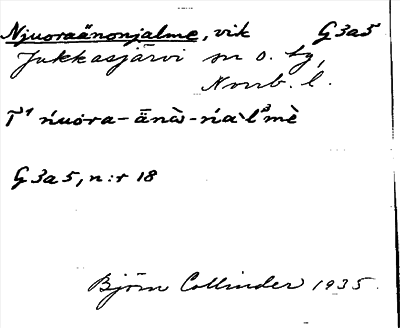 Njuoraänonjalme, vik G3a5
Jukkasjärvi sn o. tg,
Norrb. l.
T¹ ńuora-änà-ńàl²mè
G3a5, n:r 18
Björn Collinder 1935.